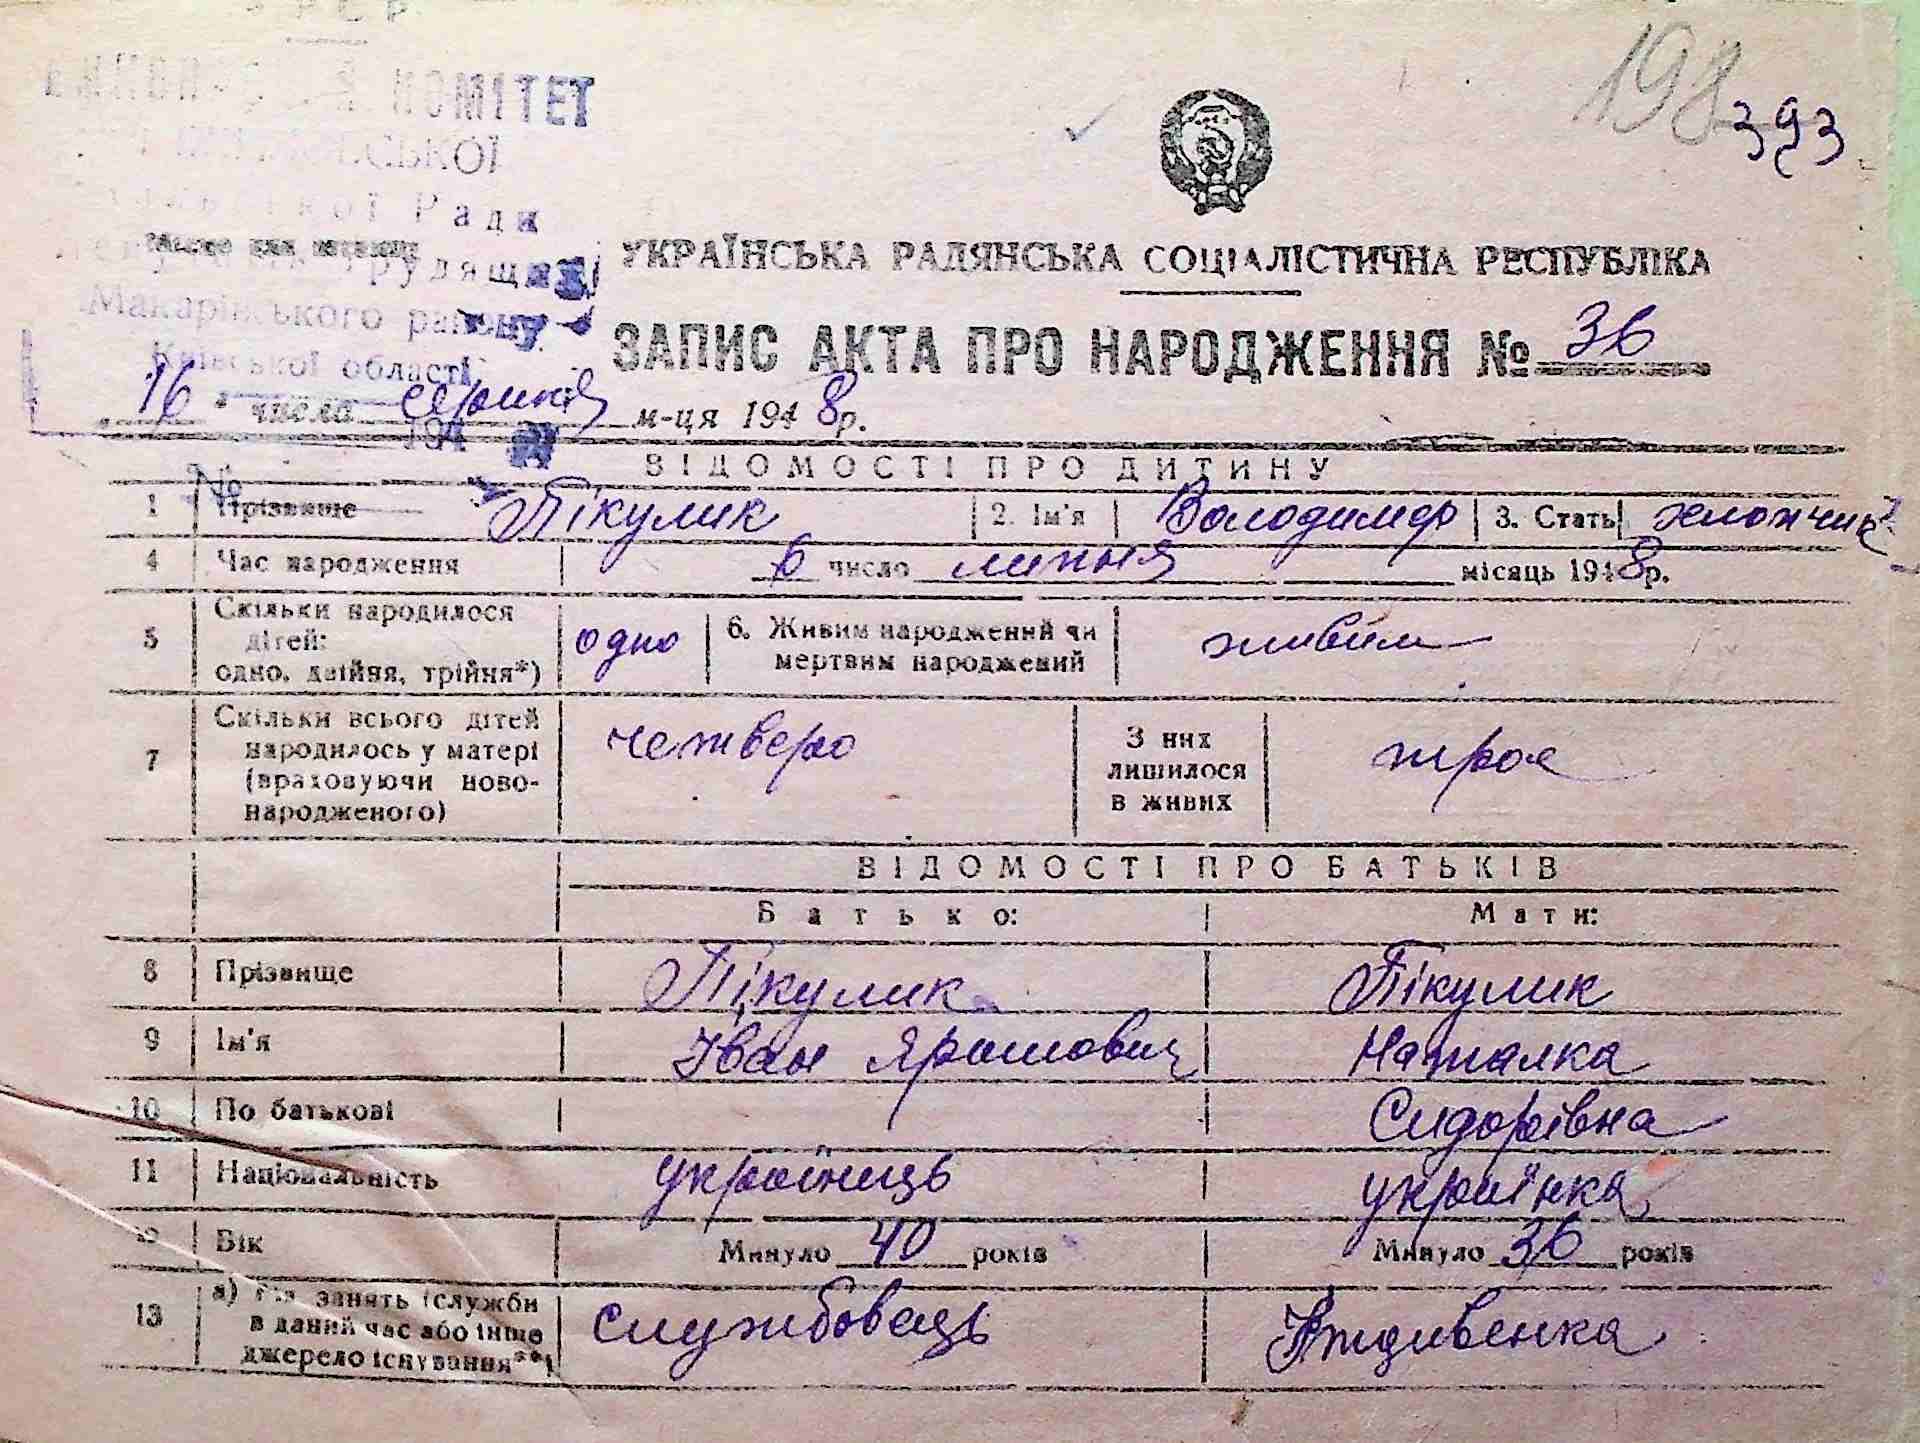 РСР
КОМІТЕТ
СЬКОЇ
Ради
трудящих
Макарівського району
Київської області
194
№
198
393
УКРАЇНСЬКА РАДЯНСЬКА СОЦІАЛІСТИЧНА РЕСПУБЛІКА
ЗАПИС АКТА ПРО НАРОДЖЕННЯ № 36
16 числа серпня м-ця 1948р.
ВІДОМОСТІ ПРО ДИТИНУ
1 Прізвище Пікулик 2. Ім'я Володимер 3. Стать хлопчик
4 Час народження 6 число липня місяць 1948р.
5 Скільки народилося дітей: одно, двійня, трійня*) одно 6. Живим народжений чи мертвим народжений живим
7 Скільки всього дітей народилось у матері (враховуючи новонародженого) четверо З них лишилося в живих троє
ВІДОМОСТІ ПРО БАТЬКІВ
Батько: Мати:
8 Прізвище Пікулик Пікулик
9 Ім'я Іван Ярошович Наталка
10 По батькові Сидорівна
11 Національність українець українка
12 Вік Минуло 40 років Минуло 36 років
13 а) Рід занять (служби в даний час або інше джерело існування**) службовець Іждивенка